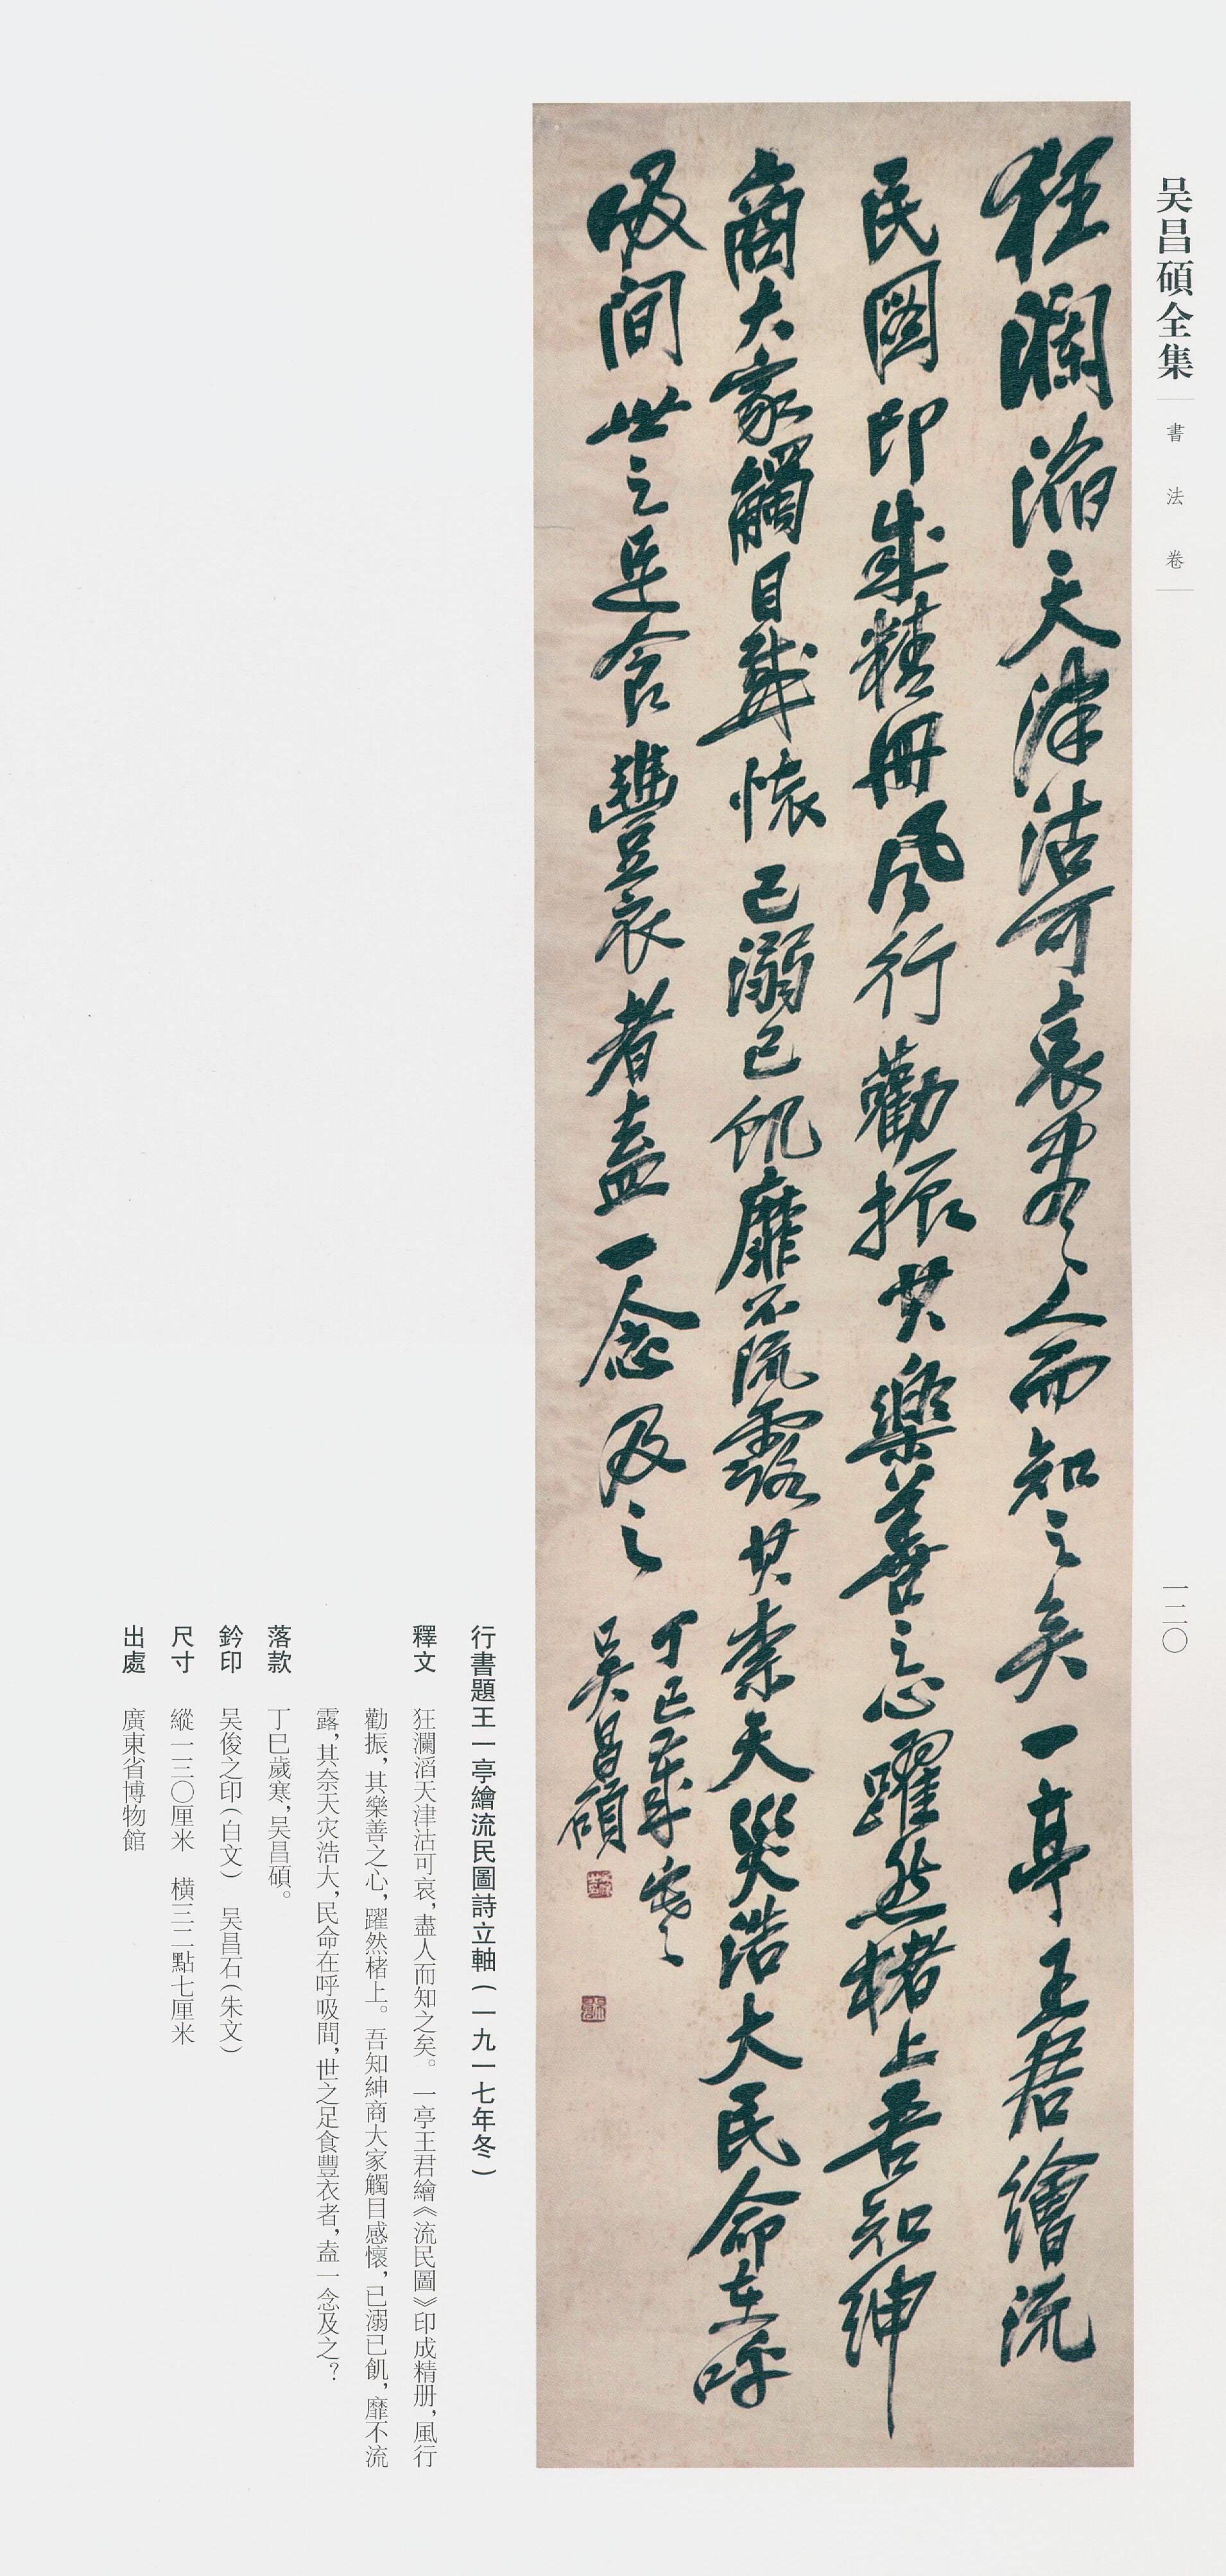 吴昌碩全集
書法卷
一二〇
狂瀾滔天津沽可哀盡人而知之矣一亭王君繪流
民圖印成精冊風行勸振其樂善之心躍然楮上吾知紳
商大家觸目感懷己溺己飢靡不流露其柰天災浩大民命在呼
吸間世之足食豐衣者盍一念及之
丁巳歲寒
吴昌碩
行書題王一亭繪流民圖詩立軸（一九一七年冬）
釋文 狂瀾滔天津沽可哀，盡人而知之矣。一亭王君繪《流民圖》印成精册，風行
勸振，其樂善之心，躍然楮上。吾知紳商大家觸目感懷，已溺已飢，靡不流
露，其奈天灾浩大，民命在呼吸間，世之足食豐衣者，盍一念及之？
落款 丁巳歲寒，吴昌碩。
鈐印 吴俊之印（白文） 吴昌石（朱文）
尺寸 縱一三〇厘米 横三二點七厘米
出處 廣東省博物館